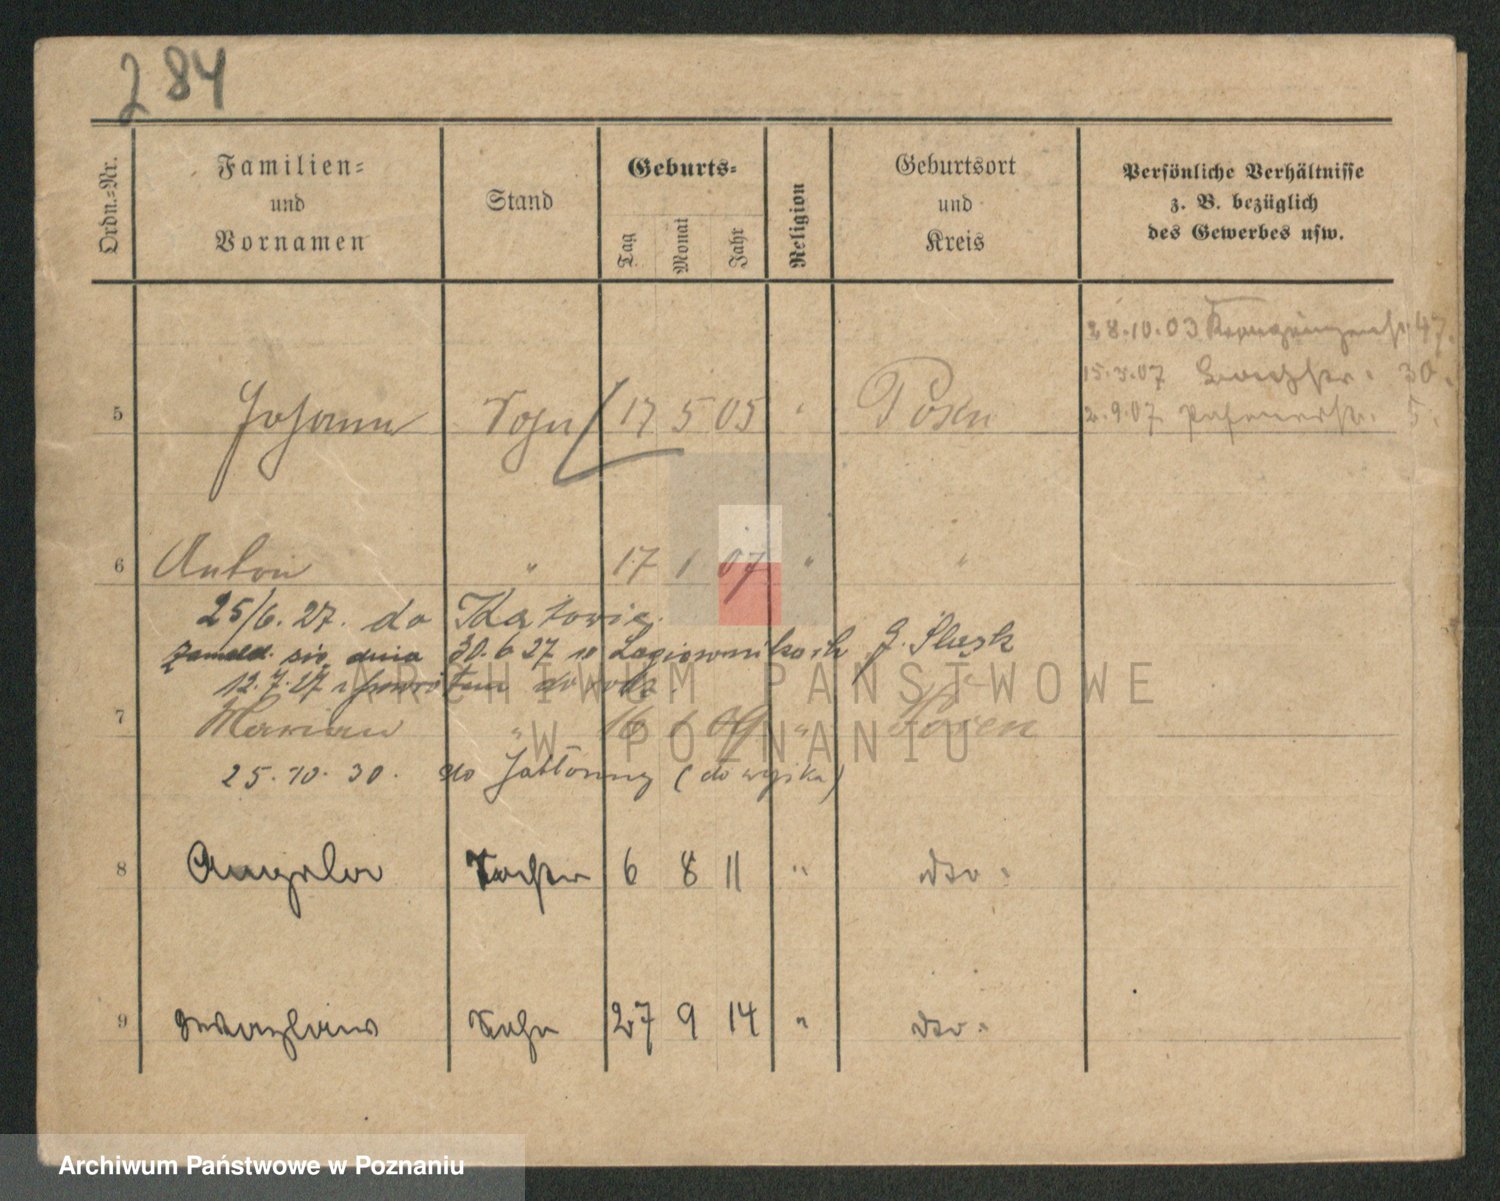 284
Ordn.-Nr.
Familien-
und
Vornamen
Stand
Geburts-
Tag
Monat
Jahr
Religion
Geburtsort
und
Kreis
Persönliche Verhältnisse
z. B. bezüglich
des Gewerbes usw.
28.10.03 47.
15.3.07 30.
2.9.07 5.
5 Johann Sohn 17 5 05 " Posen
6 Anton " 17 1 07 " "
25/6. 27. do Katowic.
zameld. się dnia 30.6 27 w Łagiewnikach G. Śląsk
12.7.27 z powrotem dowodz.
7 Marian " 16 1 09 " Posen
25.10.30. do Jabłonny (do wojska)
8 Angela Tochter 6 8 11 " dto.
9 Sohn 27 9 14 " dto.
ARCHIWUM PAŃSTWOWE
W POZNANIU
Archiwum Państwowe w Poznaniu